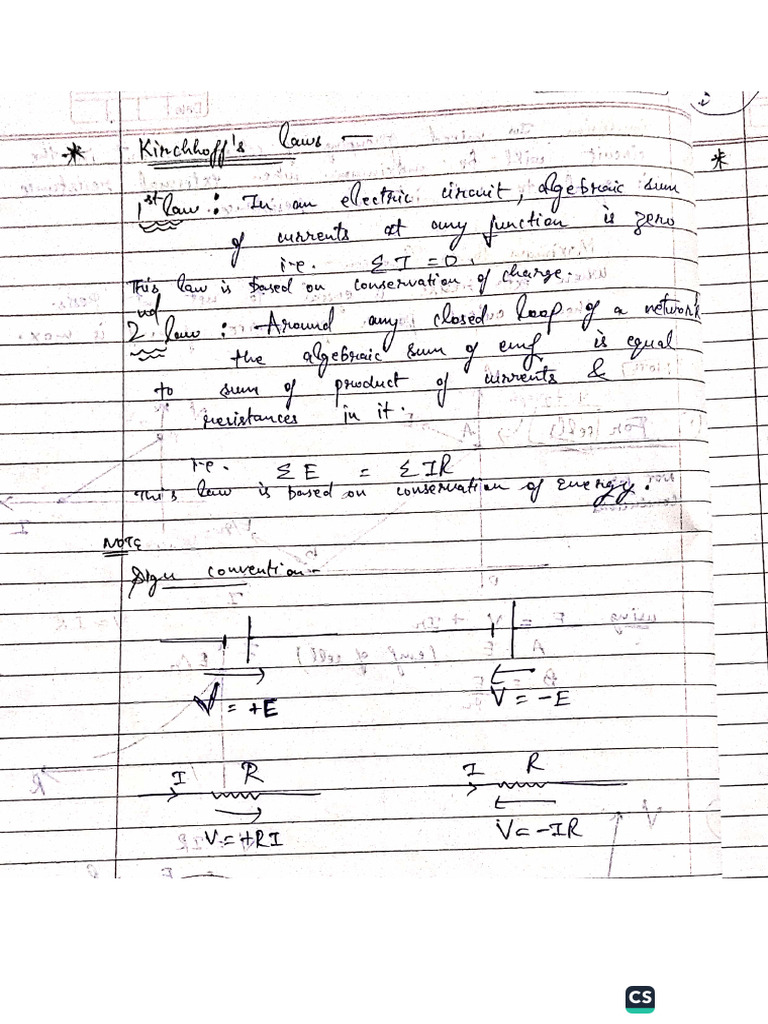 * Kirchhoff's laws —
*
1st law : In an electric circuit, algebraic sum
of currents at any junction is zero
i.e. ΣI = 0.
This law is based on conservation of charge.
2nd law : Around any closed loop of a network
the algebraic sum of emf is equal
to sum of product of currents &
resistances in it.
i.e. ΣE = ΣIR
This law is based on conservation of energy.
NOTE
Sign convention:-
E E
V = +E V = -E
I R I R
V = +RI V = -IR
CS